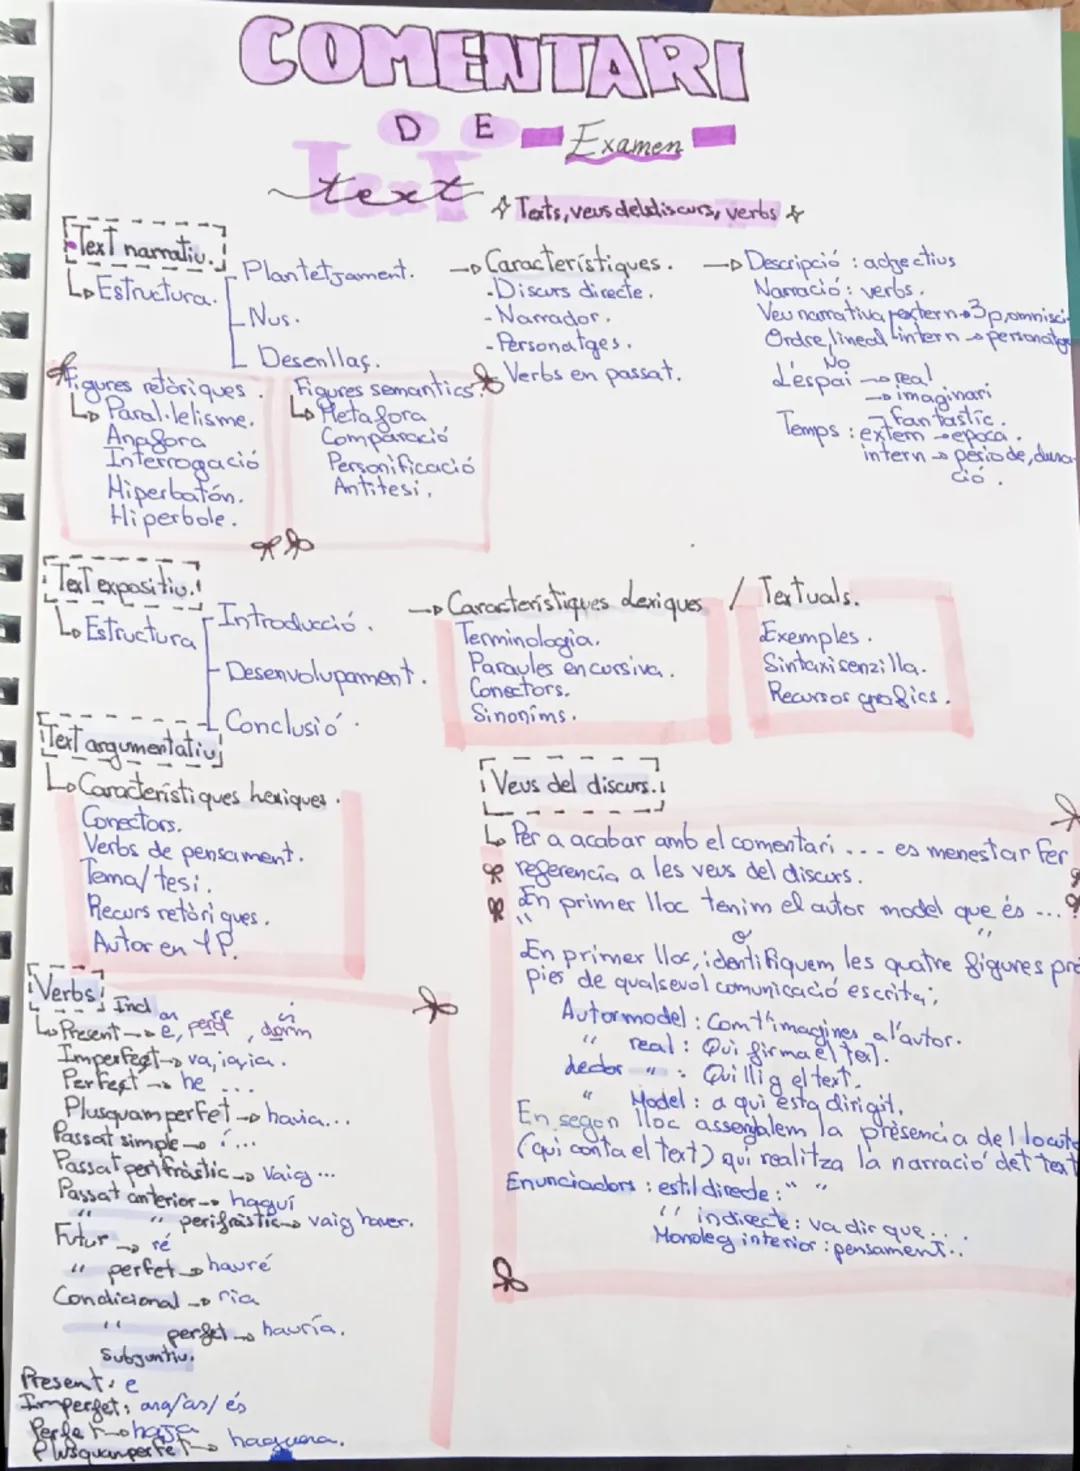 COMENTARI
DE
Examen
text
Texts, veus del discurs, verbs
Text narratiu.
Estructura.
Plantetjament.
Nus.
Desenllaç.
Característiques.
-Discurs directe.
-Narrador.
-Personatges.
Verbs en passat.
Descripció : adjectius
Narració: verbs.
Veu narrativa extern→3p, omnisci
Ordre, lineal intern → personatge
No
L'espai → real
→ imaginari
→ fantastic.
Temps : extern → epoca.
intern → periode, dura-
ció.
Figures retòriques.
Paral·lelisme.
Anafora
Interrogació
Hiperbatón.
Hiperbole.
Figures semantics.
Metafora
Comparació
Personificació
Antitesi.
Text expositiu.
Estructura
Introducció.
Desenvolupament.
Conclusió.
Característiques Lexiques / Textuals.
Terminologia.
Paraules en cursiva.
Conectors.
Sinonims.
Exemples.
Sintaxi senzilla.
Recursos grafics.
Text argumentatiu
Característiques lexiques.
Conectors.
Verbs de pensament.
Tema/tesi.
Recurs retòriques.
Autor en 1P.
Veus del discurs.
Per a acabar amb el comentari ... es menestar Fer
referencia a les veus del discurs.
En primer lloc tenim el autor model que és ...
" o "
En primer lloc, identifiquem les quatre figures pro
pies de qualsevol comunicació escrita;
Autor model : Com t'imagines a l'autor.
" real : Qui firma el text.
Lector " : Qui llig el text.
" Model : a qui esta dirigit.
En segon lloc assenyalem la presencia del locuto
(qui conta el text) qui realitza la narració del text
Enunciadors : estil directe : " "
" indirecte : va dir que...
Monoleg interior : pensament...
Verbs! Ind
an re i
Present → e, perd, dorm
Imperfect → va, ia, ia.
Perfect → he ...
Plusquamperfet → havia...
Passat simple → í...
Passat perifràstic → Vaig ...
Passat anterior → haguí
" " perifràstic → vaig haver.
Futur → ré
" perfet → hauré
Condicional → ria
" perfet → hauría.
Subjuntiu.
Present: e
Imperfet: ara/as/és
Perfet → haja
Plusquanperfet → haguera.